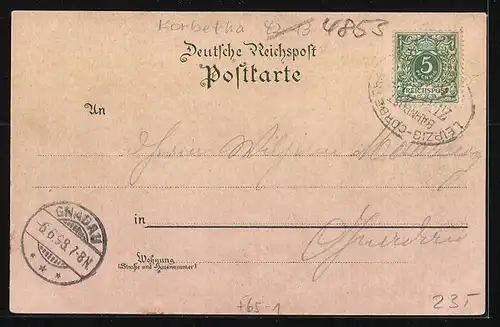 Korbetha
4853
Deutsche Reichspost
Postkarte
5
REICHSPOST
LEIPZIG-CORBETHA
BAHNPOST
An
Herrn Wilhelm
GNADAU
6.6.98. 7-8N
* * *
in Gnadau
Wohnung
(Straße und Hausnummer)
+65-1
235